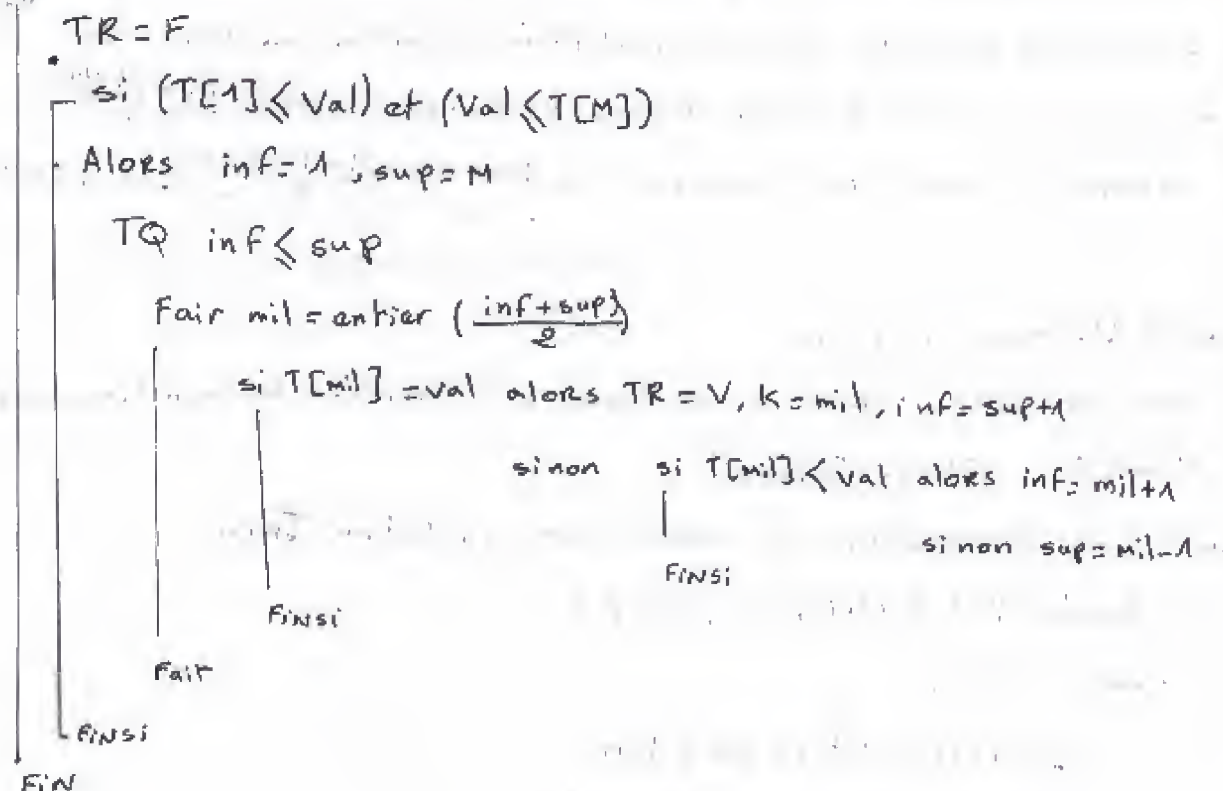 TR = F
si (T[1] ≤ Val) et (Val ≤ T[M])
Alors inf = 1 ; sup = M
TQ inf ≤ sup
Fair mil = entier (\frac{inf+sup}{2})
si T[mil] = val alors TR = V, K = mil, inf = sup+1
sinon si T[mil] < val alors inf = mil+1
sinon sup = mil-1
FINSi
FiNSi
Fait
FiNSi
FiN